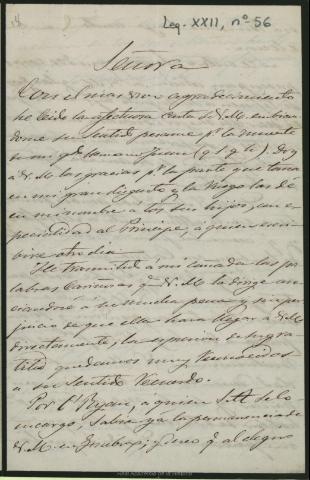 14
Leg. XXII, nº 56
Señora
Con el mas vivo agradecimiento
he leido la afectuosa carta de V.M. envian
dome su sentido pesame pr la muerte
de mi qdo hermano Juan (q. s. g. h.). Doy
á V.M. las gracias pr la parte que toma
en mi gran disgusto y la ruego las dé
en mi nombre á tos sus hijos, con es
pecialidad al Principe, á quien escri
biré otro dia.
He transmitido á mi cuñada las pa
labras cariñosas qe V.M. la dirige
á su mucha pena y sin per
juicio de que ella hara llegar á V.M.
directamente, la espresion de su gra
titud quedamos muy reconocidos
á su sentido recuerdo.
Por Ct Ryan, á quien S.A. se lo
encargó, sabia yá la permanencia de
V.M. en ; creo qe al elegir